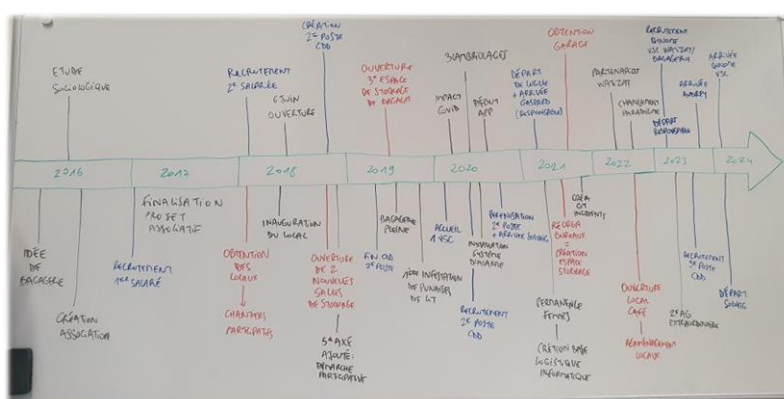 ETUDE
SOCIOLOGIQUE
RECRUTEMENT
2E SALARIÉE
6 JUIN
OUVERTURE
CRÉATION
2E POSTE
CDD
OUVERTURE
3E ESPACE
DE STOCKAGE
DE BAGAGES
IMPACT
COVID
3 CAMBRIOLAGES
DÉBUT
APP
DÉPART
DE
+ ARRIVÉE
GASPARD
(RESPONSABLE)
OBTENTION
GARAGE
PARTENARIAT
CHANGEMENT
RECRUTEMENT
BINOME
VSC
BAGAGERIE
DÉPART
RESPONSABLE
ARRIVÉE
AUDREY
ARRIVÉE
BINOME
VSC
2016
2017
2018
2019
2020
2021
2022
2023
2024
IDÉE
DE
BAGAGERIE
CRÉATION
ASSOCIATION
RECRUTEMENT
1ER SALARIÉ
FINALISATION
PROJET
ASSOCIATIF
OBTENTION
DES
LOCAUX
CHANTIERS
PARTICIPATIFS
INAUGURATION
DU LOCAL
OUVERTURE
DE 2
NOUVELLES
SALLES
DE STOCKAGE
5E AXE
AJOUTÉ :
DÉMARCHE
PARTICIPATIVE
FIN CDD
2E POSTE
BAGAGERIE
PLEINE
1ÈRE INFESTATION
DE PUNAISES
DE LIT
ACCUEIL
1 VSC
RECRUTEMENT
2E POSTE
CDD
INSTALLATION
SYSTÈME
D'ALARME
PÉRENNISATION
2E POSTE
+ ARRIVÉE SOLWEG
PERMANENCE
FEMMES
CRÉATION BASE
LOGISTIQUE
INFORMATIQUE
BUREAUX
= CRÉATION
ESPACE
STOCKAGE
INCIDENTS
OUVERTURE
LOCAL
CAFÉ
RÉAMÉNAGEMENT
LOCAUX
2E AG
EXTRAORDINAIRE
RECRUTEMENT
3E POSTE
CDD
DÉPART
SOLWEG